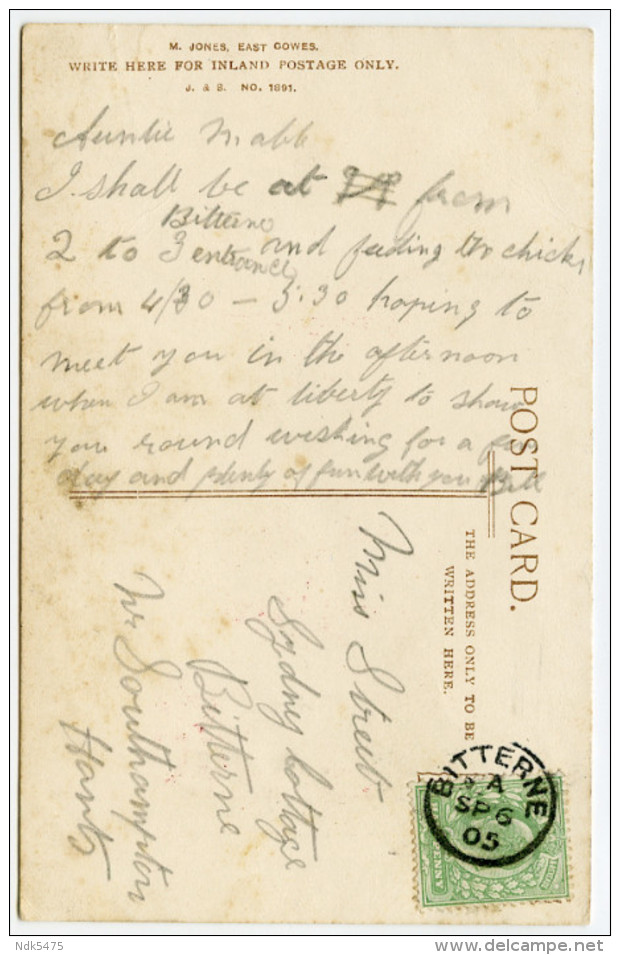 M. JONES, EAST COWES.
WRITE HERE FOR INLAND POSTAGE ONLY.
J. & S. NO. 1891.
Auntie Mabb
I shall be at from
Bitterne
2 to 3 entrance and feeding the chicks
from 4/30 – 5.30 hoping to
meet you in the afternoon
when I am at liberty to show
you round wishing for a fine
day and plenty of fun with you Bill
POST CARD.
THE ADDRESS ONLY TO BE
WRITTEN HERE.
Miss Street
Sydney Cottage
Bitterne
Nr Southampton
Hants
BITTERNE
A
SP 6
05
Ndk5475
delcampe.net